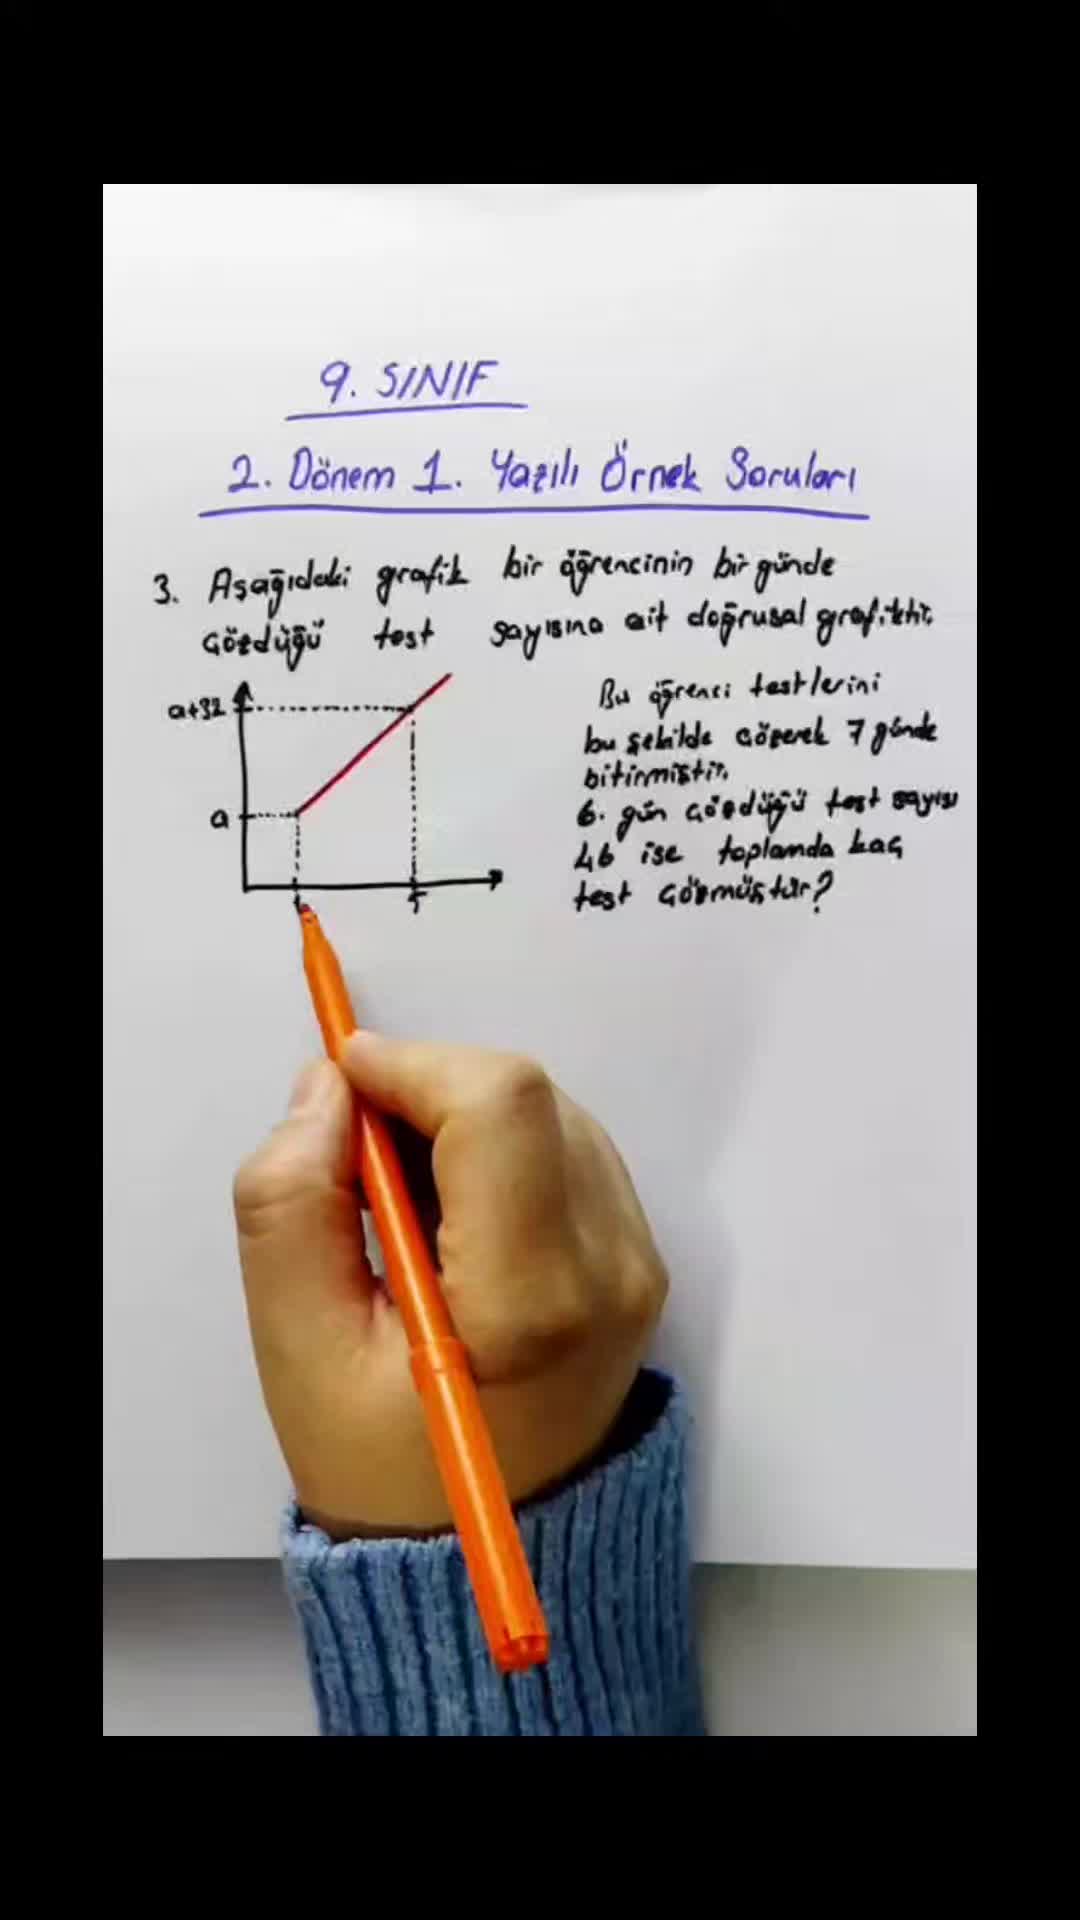 9. SINIF
2. Dönem 1. Yazılı Örnek Soruları
3. Aşağıdaki grafik bir öğrencinin bir günde
çözdüğü test sayısına ait doğrusal grafiktir.
a+32
a
5
Bu öğrenci testlerini
bu şekilde çözerek 7 günde
bitirmiştir.
6. gün çözdüğü test sayısı
46 ise toplamda kaç
test çözmüştür?